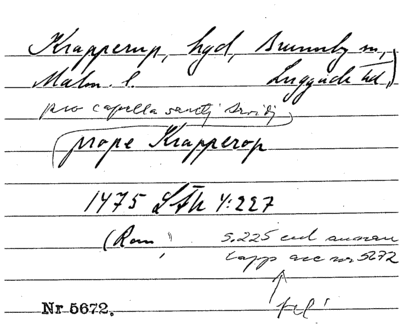 Krapperup, hgd, Brunnby sn,
Malm. l. Luggude hd,
pro capella sancti
prope Krapperop
1475 LÄh 4:227
(Rom
s. 225 enl annan
lapp acc nr 5672
fel!
Nr 5672.